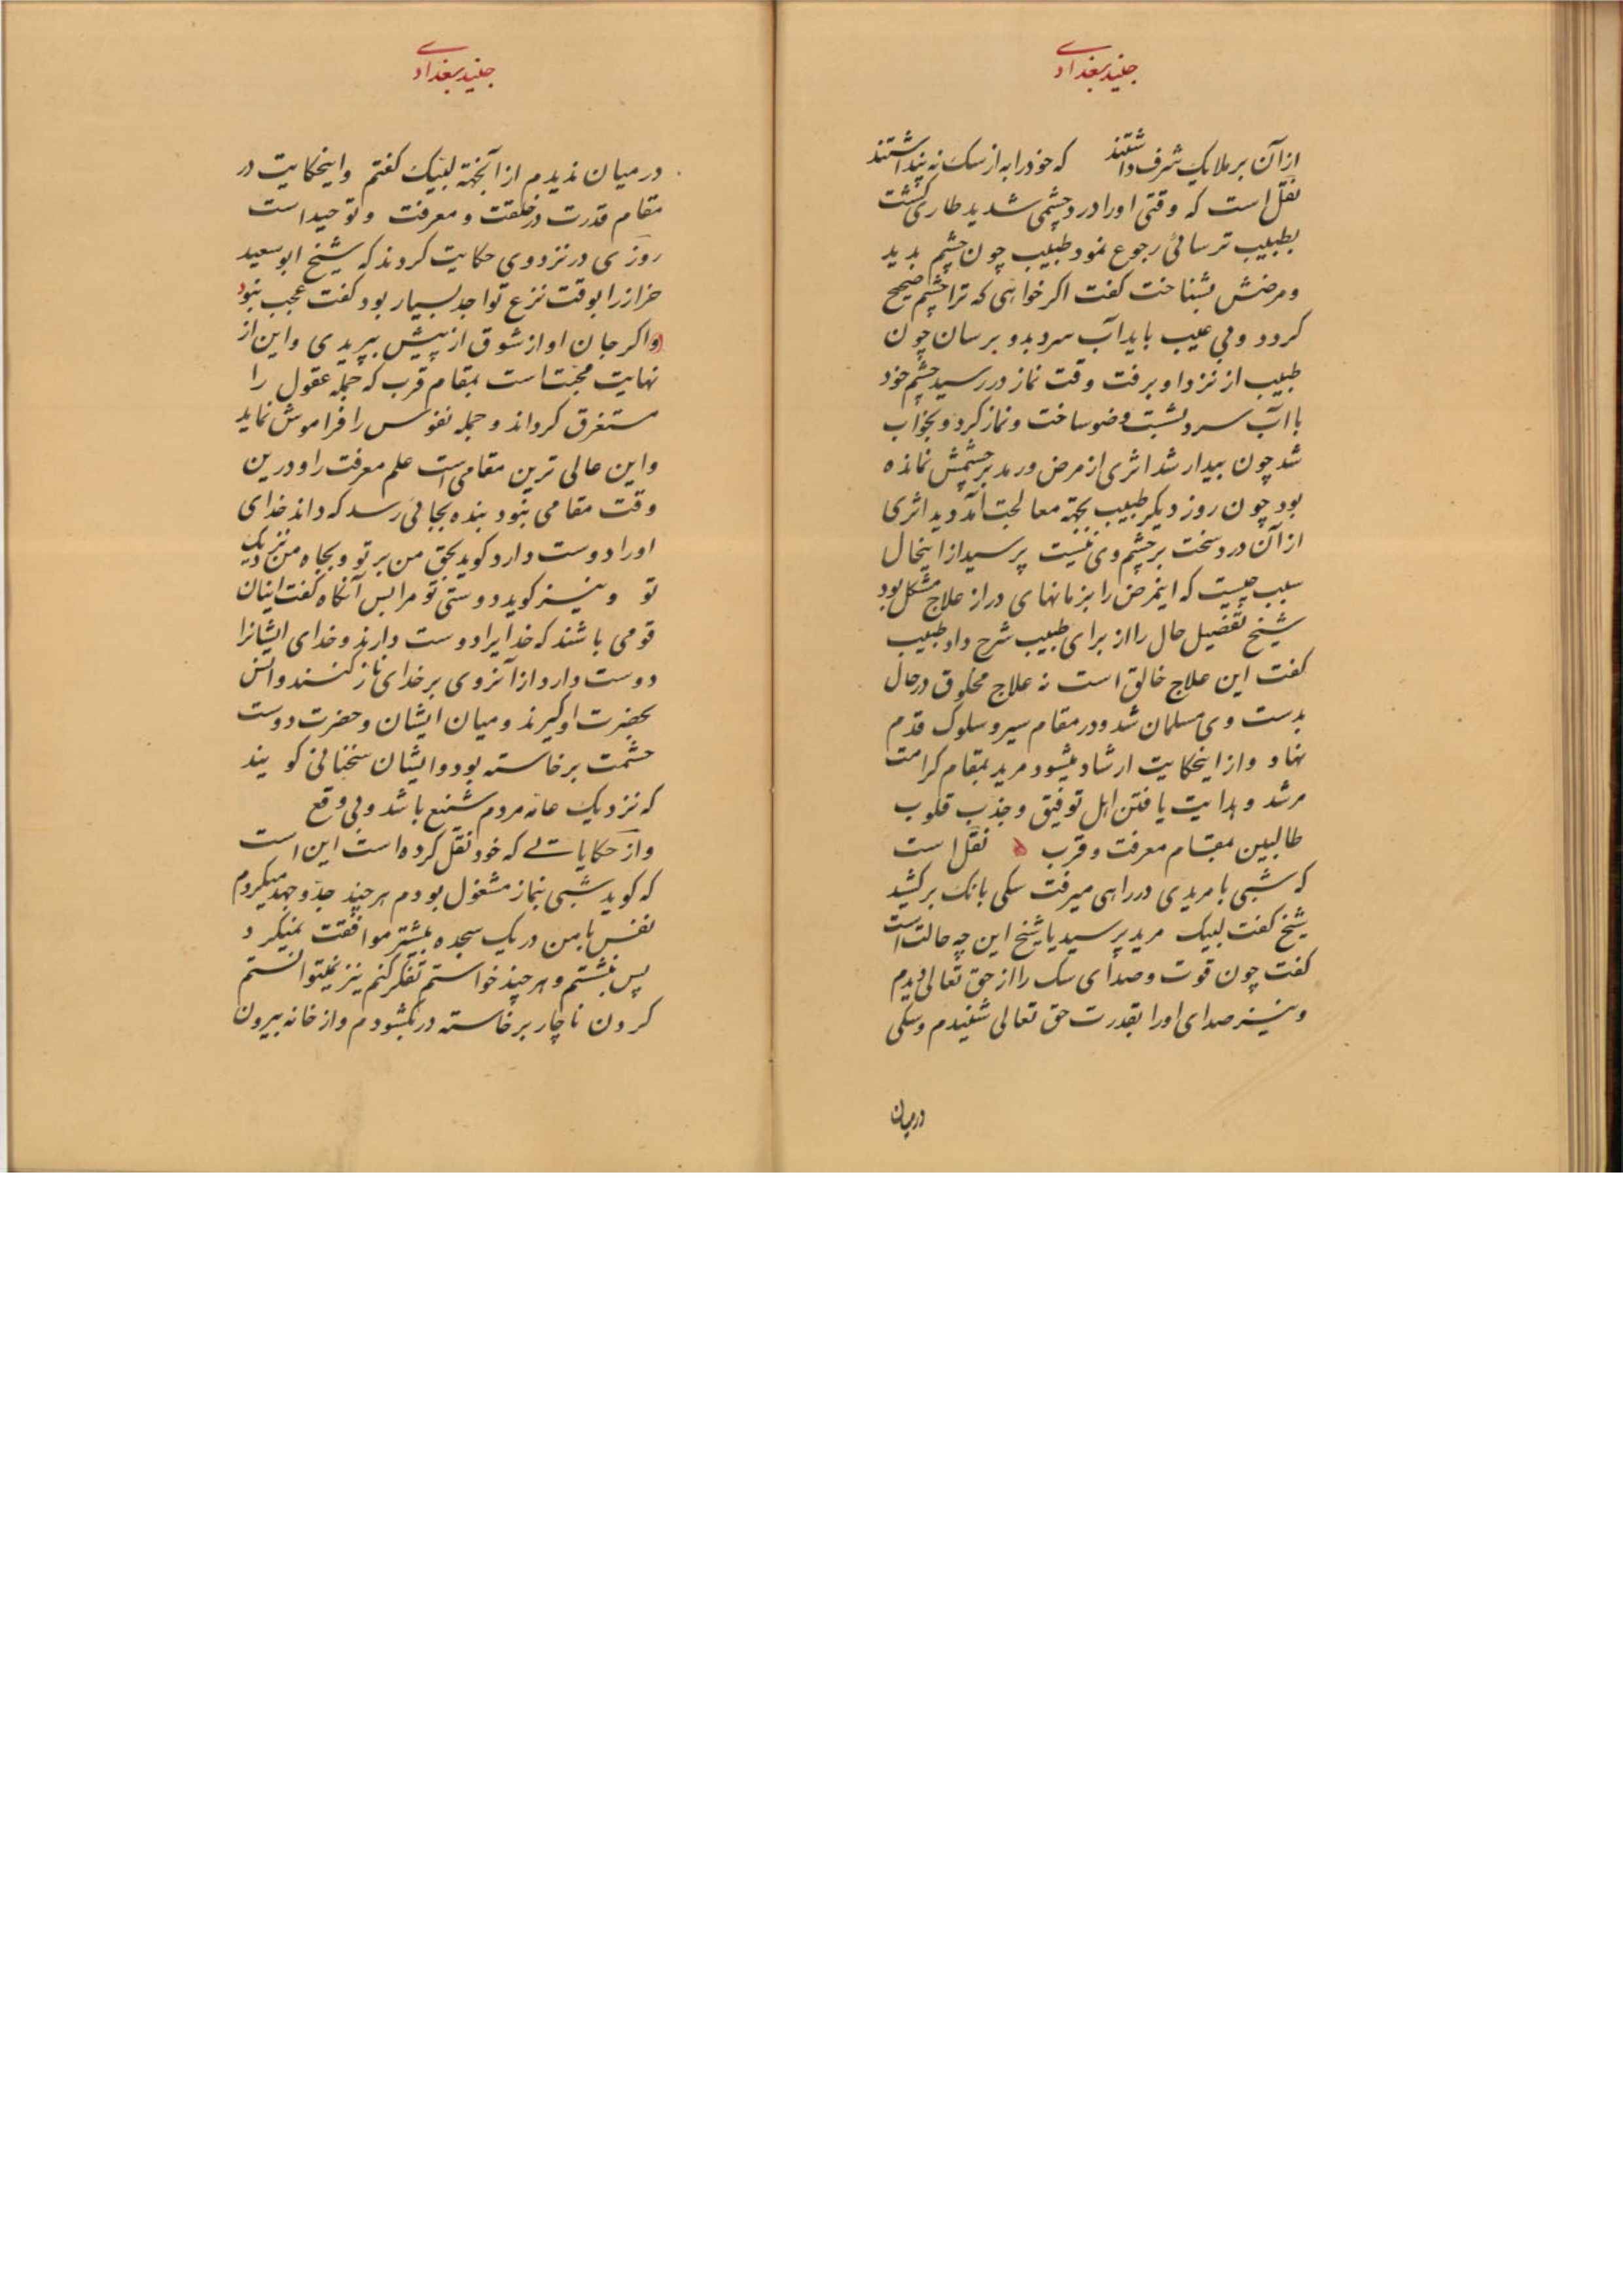 جنید بغدادی
ازآن بر ملایک شرف داشتند که خود را به از سک نه پنداشتند
نقل است که وقتی او را درد چشمی شدید طاری گشت
بطبیب ترسائی رجوع نمود طبیب چون چشم بدید
ومرضش بشناخت کفت اکر خواهی که ترا چشم صحیح
کردد وبی عیب باید آب سرد بدو برسان چون
طبیب از نزد او برفت وقت نماز در رسید چشم خود
با آب سرد بشست وضو ساخت ونماز کرد و بخواب
شد چون بیدار شد اثری از مرض ورمد بر چشمش نمانده
بود چون روز دیکر طبیب بجهة معالجت آمد و دید اثری
از آن درد سخت بر چشم وی نیست پرسید از اینحال
سبب چیست که اینمرض را بزمانهای دراز علاج مشکل بود
شیخ تفضیل حال را از برای طبیب شرح داد طبیب
کفت این علاج خالق است نه علاج مخلوق در حال
بدست وی مسلمان شد و در مقام سیر و سلوک قدم
نهاد و از اینحکایت ارشاد میشود مرید بمقام کرامت
مرشد و هدایت یافتن اهل توفیق و جذب قلوب
طالبین بمقام معرفت و قرب نقل است
که شبی با مریدی در راهی میرفت سکی بانک برکشید
شیخ کفت لبیک مرید پرسید یا شیخ این چه حالت است
کفت چون قوت و صدای سک را از حق تعالی دیدم
ونیز صدای او را بقدرت حق تعالی شنیدم وسکی
درمیان
جنید بغدادی
درمیان ندیدم از آنجهة لبیک کفتم واینحکایت در
مقام قدرت در خلقت و معرفت و توحید است
روزی در نزد وی حکایت کردند که شیخ ابو سعید
خراز را بوقت نزع تواجد بسیار بود کفت عجب نبود
واکر جان او از شوق از پیش بپریدی و این از
نهایت محبت است بمقام قرب که جمله عقول را
مستغرق کرداند و جمله نفوس را فراموش نماید
واین عالی ترین مقامی است علم معرفت را و درین
وقت مقامی بنود بنده بجائی رسد که داند خدای
اورا دوست دارد کوید بحق من بر تو و بجاه من نزدیک
تو ونیز کوید دوستی تو مرا بس آنکاه کفت اینان
قومی باشند که خدایرا دوست دارند و خدای ایشانرا
دوست دارد از آنروی بر خدای ناز کنند و انس
بحضرت او کیرند و میان ایشان و حضرت دوست
حشمت برخاسته بود و ایشان سخنانی کویند
که نزدیک عامه مردم شنیع باشد و بی وقع
واز حکایاتی که خود نقل کرده است این است
که کوید شبی بنماز مشغول بودم هر چند جد و جهد میکردم
نفس با من در یک سجده بیشتر موافقت نمیکرد
پس بنشستم و هر چند خواستم تفکر کنم نیز نمیتوانستم
کردن ناچار برخاسته در بکشودم و از خانه بیرون